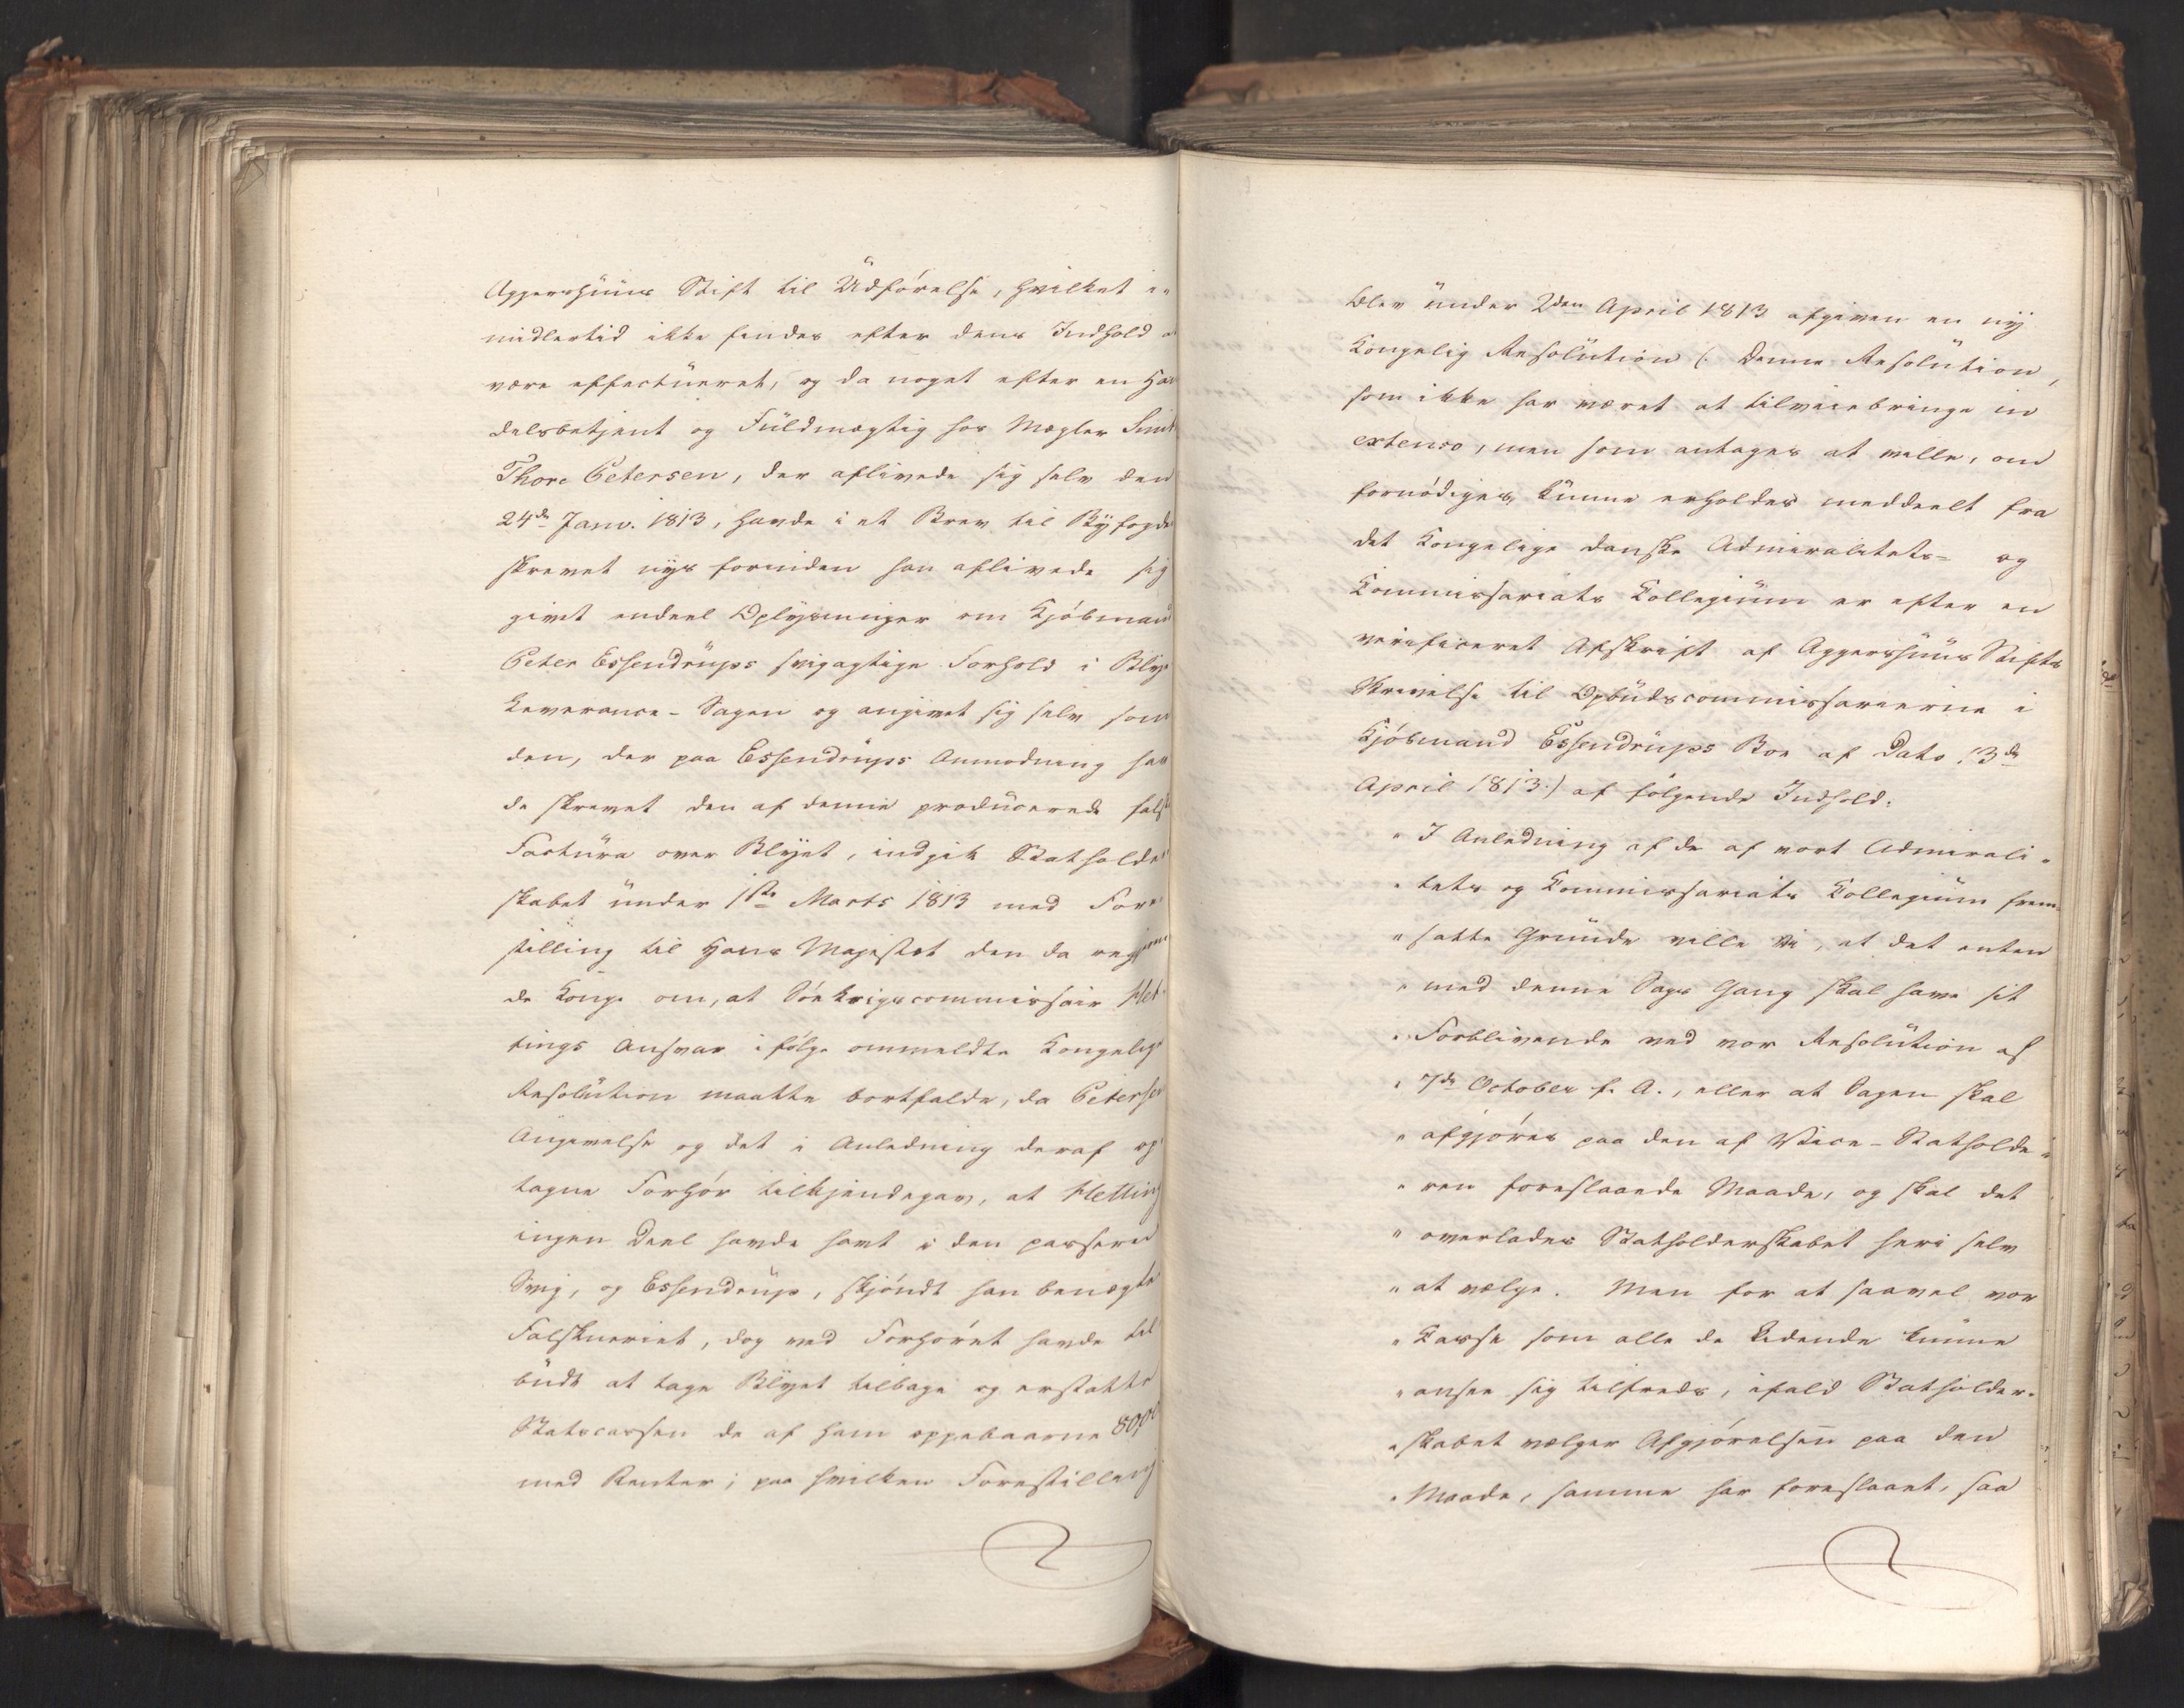 Aggershuus Stift til Udførelse, hvilket i„
midlertid ikke findes efter dens Indhold a
være effectueret, og da noget efter en Han
delsbetjent og Fuldmægtig hos Mægler Smit
Thore Petersen, der aflivede sig selv den
24de Janv. 1813, havde i et Brev til Byfogde
skrevet nys forinden han aflivede sig
givet endeel Oplysninger om Kjøbmand
Peter Essendrups svigagtige Forhold i Blye
Leverance-Sagen og angivet sig selv som
den, der paa Essendrups Anmodning hav
de skrevet den af denne producerede fals
Factura over Blyet, indgik Statholder
skabet under 1ste Marts 1813 med Fore
stilling til Hans Majestæt den da regjeren
de Konge om, at Söekrigscommissair Het-
tings Ansvar ifølge ommeldte Kongelige
Resolution maatte bortfalde, da Petersen
Angivelse og det i Anledning deraf op
tagne Forhør tilkjendegav, at Hetting
ingen Deel havde havt i den passered
Svig, og Essendrup, skjøndt han benægte
Falskneriet, dog ved Forhøret havde til
budt at tage Blyet tilbage og erstatte
Statscassen de af ham oppebaarne 80,00
med Renter; paa hvilken Forestilling
blev under 2den April 1813 afgiven en ny
Kongelig Resolution (: Denne Resolution,
som ikke har været at tilveiebringe in
extenso, men som antages at ville, om
fornødiges, kunne erholdes meddeelt fra
det Kongelige danske Admiralitets- og
Commissariats Collegium er efter en
verificeret Afskrift af Aggershuus Stifts
Skrivelse til Opbudscommissairerne i
Kjøbmand Essendrups Boe af Dato 13de
April 1813:) af følgende Indhold:
„I Anledning af de af vort Admirali„
„tets og Commissariats Collegium frem„
„satte Grunde ville Vi, at det enten
„med denne Sags Gang skal have sit
„Forblivende ved vor Resolution af
„7de October f. A., eller at Sagen skal
„afgjøres paa den af Vice-Statholde„
„ren foreslaaede Maade, og skal det
„overlades Statholderskabet heri selv
„at vælge. Men for at saavel vor
„Casse som alle de Lidende kunne
„ansee sig tilfreds, ifald Statholder„
„skabet vælger Afgjørelsen paa den
„Maade, samme har foreslaaet, saa